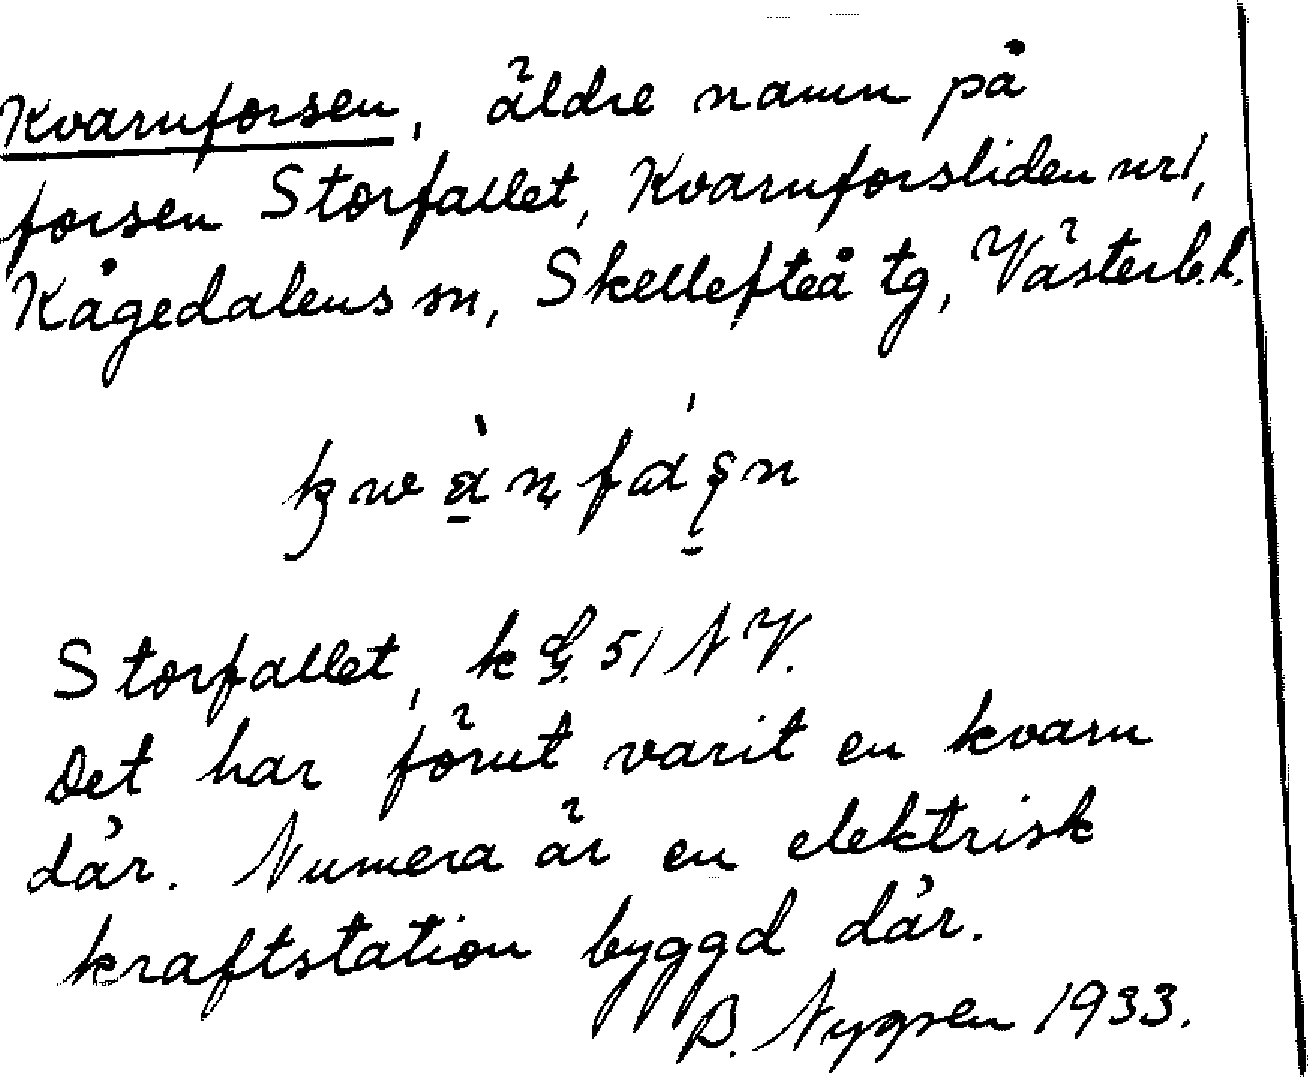 Kvarnforsen, äldre namn på
forsen Storfallet, Kvarnforsliden nr 1,
Kågedalens sn, Skellefteå tg, Västerb. l.
Storfallet, k G. 51 NV.
Det har förut varit en kvarn
där. Numera är en elektrisk
kraftstation byggd där.
B. Nygren 1933.